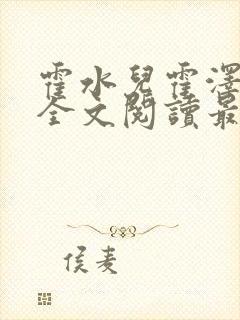 霍水兒霍澤
全文閱讀最
侯麦